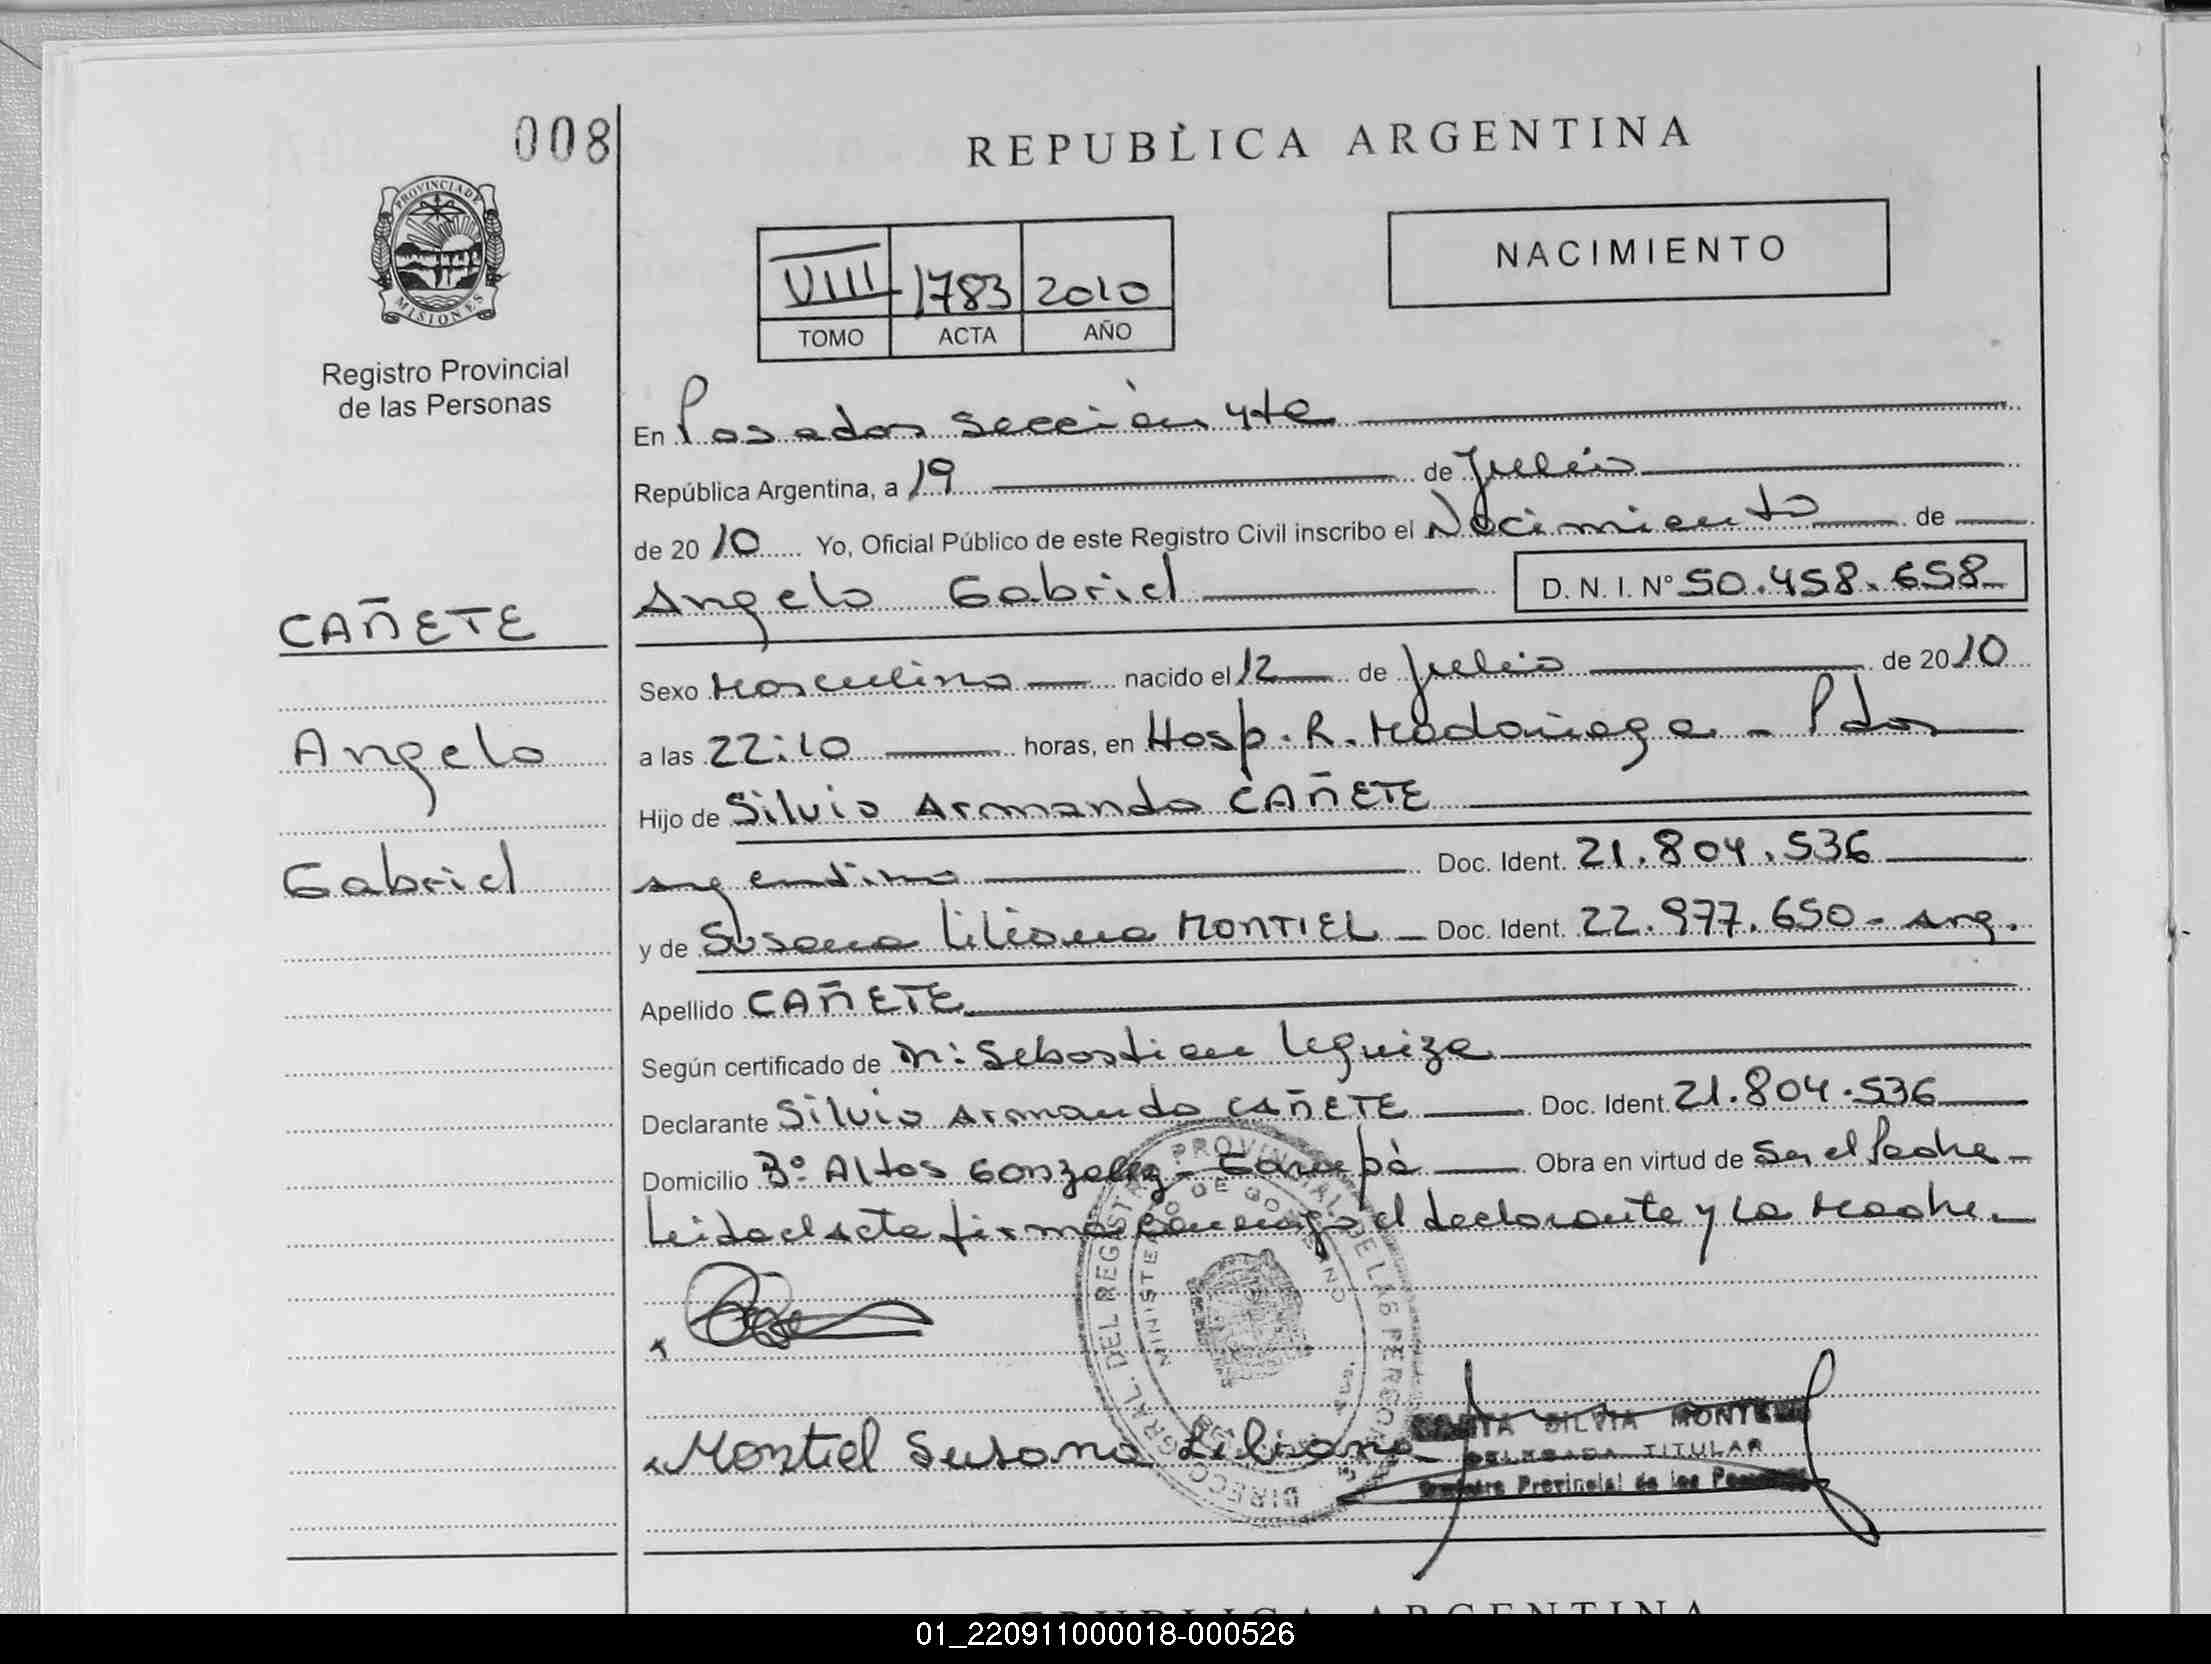 008
REPUBLICA ARGENTINA
PROVINCIA DE
MISIONES
Registro Provincial
de las Personas
VIII 1783 2010
TOMO ACTA AÑO
NACIMIENTO
En Posadas Sección 4ta
República Argentina, a 19 de Julio
de 2010 Yo, Oficial Público de este Registro Civil inscribo el Nacimiento de
Angelo Gabriel D. N. I. Nº 50.458.658
CAÑETE
Angelo
Gabriel
Sexo Masculino nacido el 12 de Julio de 2010
a las 22:10 horas, en Hosp. R. Madariaga - Pdas
Hijo de Silvio Armando CAÑETE
argentino Doc. Ident. 21.804.536
y de Susana Liliana MONTIEL - Doc. Ident. 22.977.650 - arg.
Apellido CAÑETE
Según certificado de Sebastian Leguiza
Declarante Silvio Armando CAÑETE Doc. Ident. 21.804.536
Domicilio Bº Altos Gonzalez - Garupá Obra en virtud de Ser el Padre -
Leida el Acta firman conmigo el declarante y la Madre -
Montiel Susana Liliana
DIRECC. GRAL. DEL REGISTRO PROVINCIAL DE LAS PERSONAS
MINISTERIO DE GOBIERNO
SILVIA
DELEGADA TITULAR
Registro Provincial de las Personas
REPUBLICA ARGENTINA
01_220911000018-000526